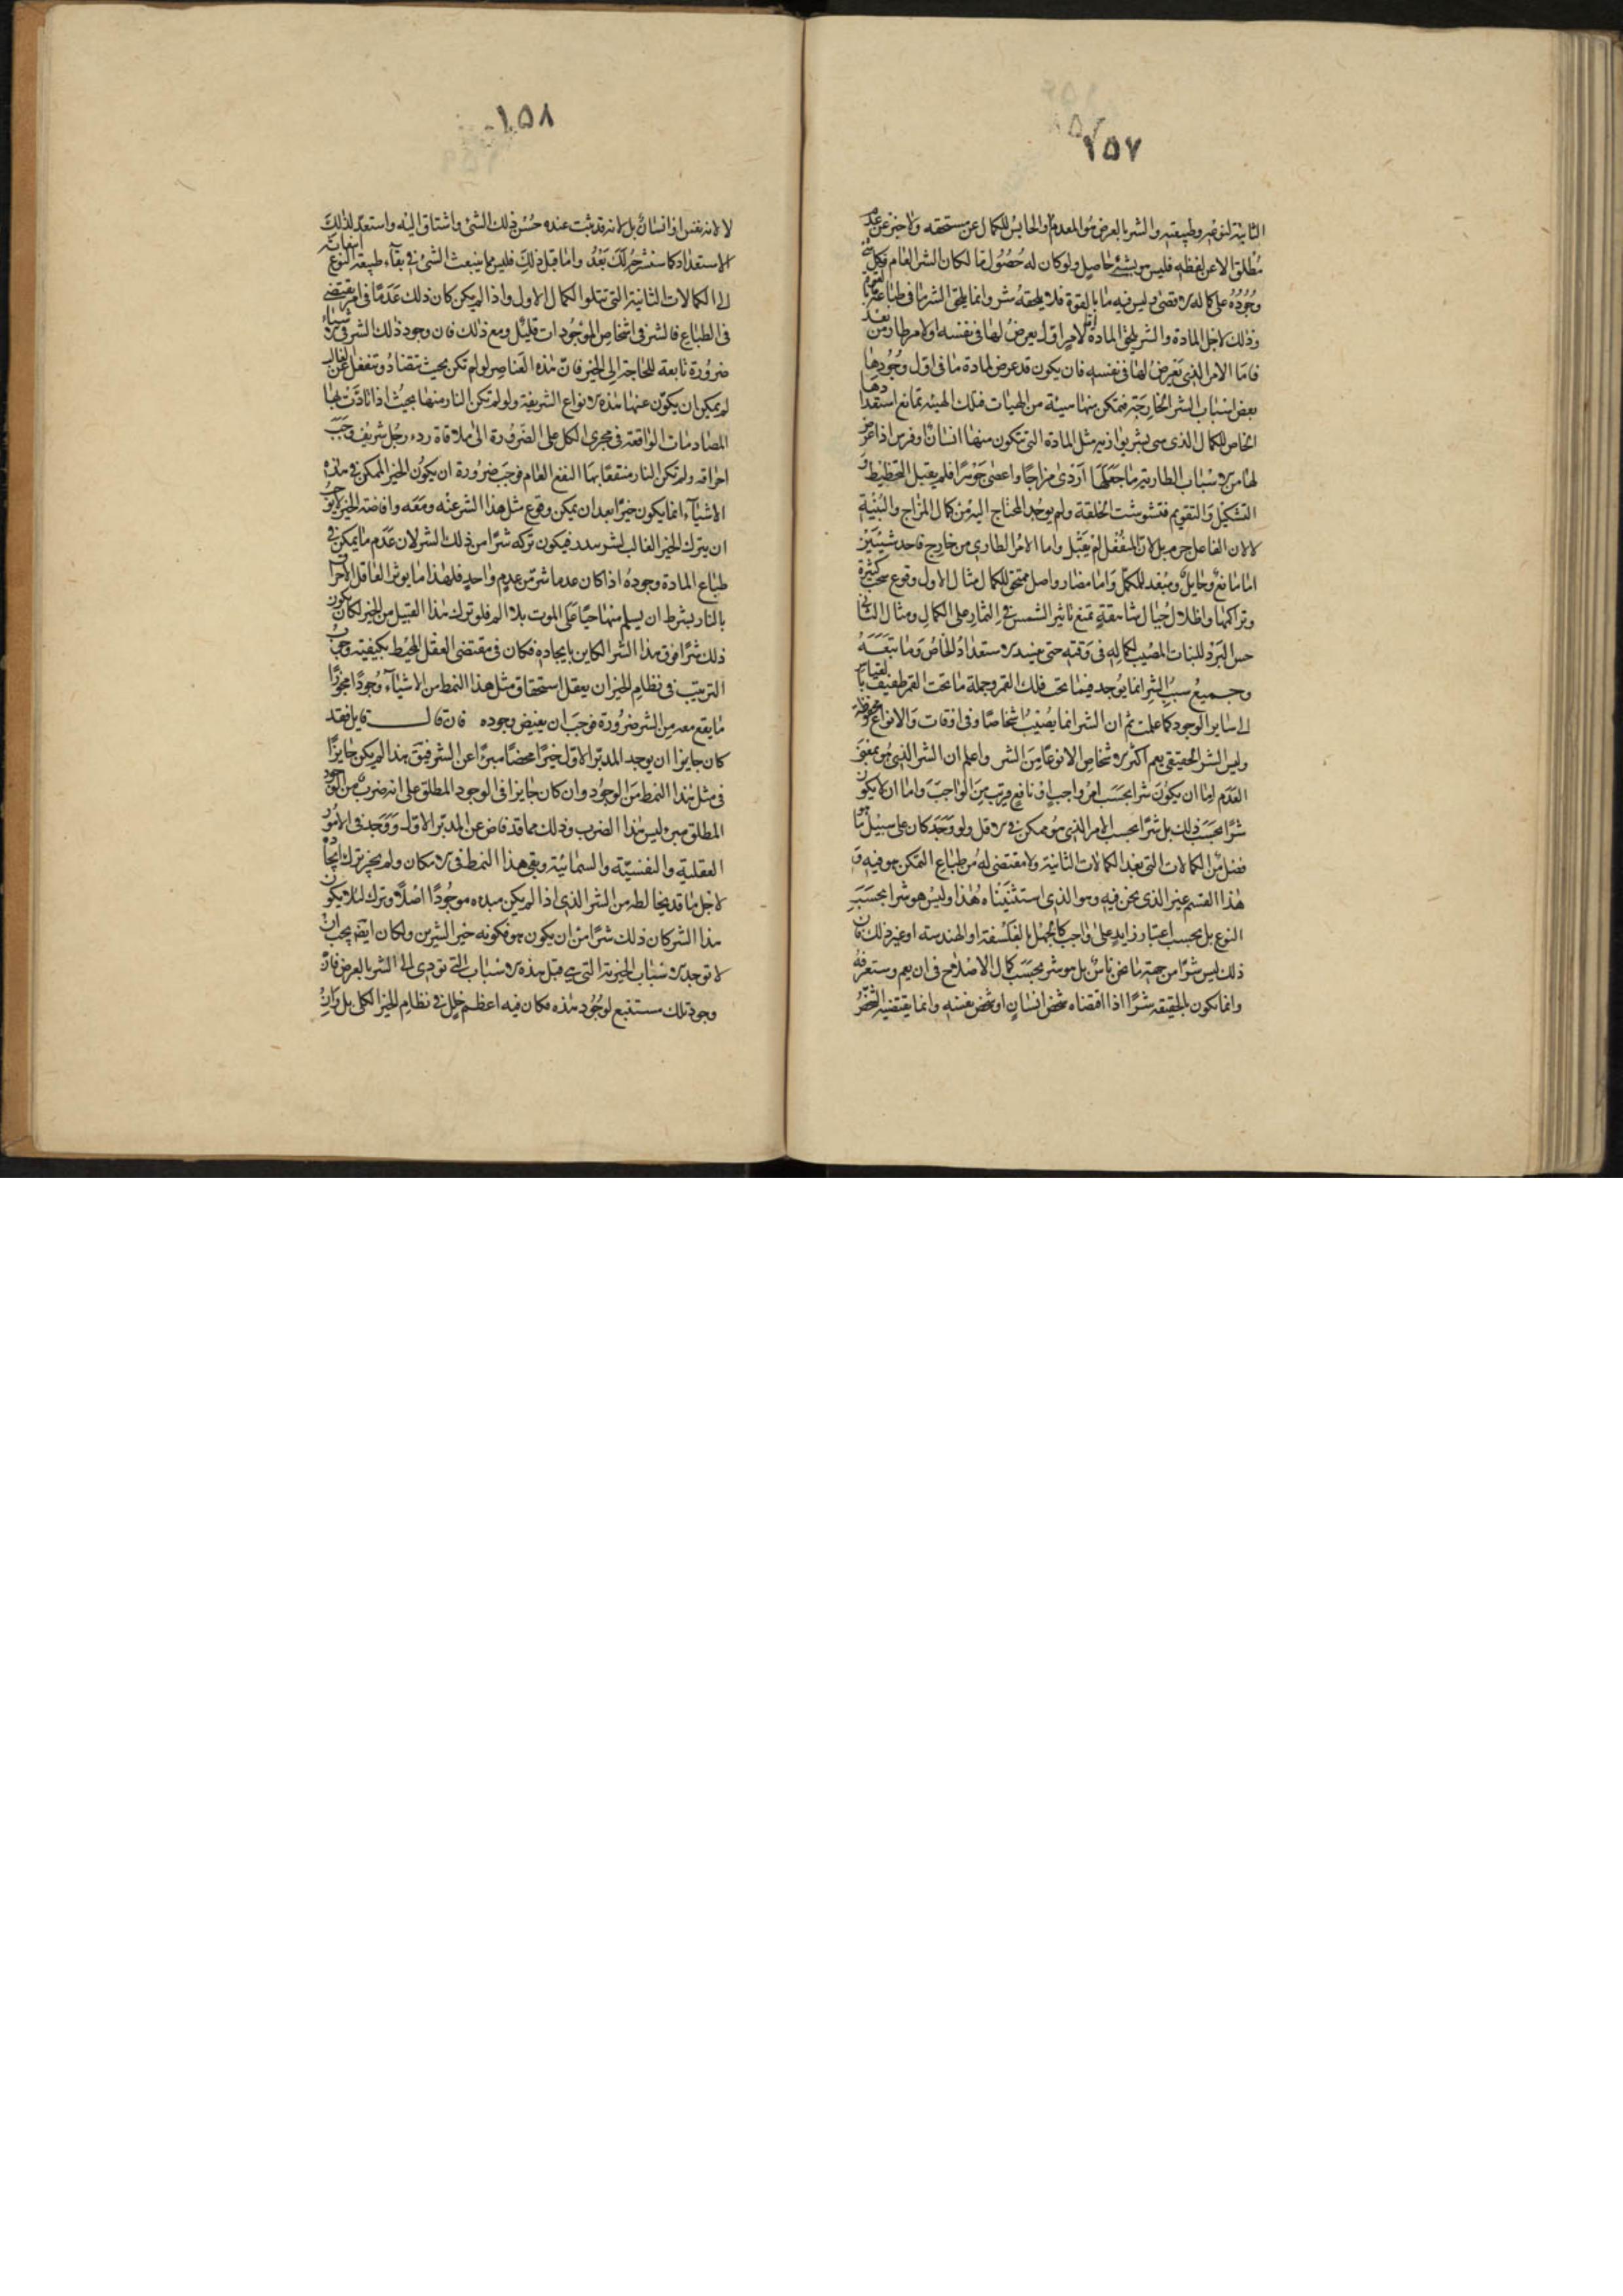 ١٥٧
الثانية لنوعه وطبيعته والشر بالعرض هو المعدوم او الحابس للكمال عن مستحقه ولا خبر عن عدم
مطلق الا عن لفظه فليس هو بشئ حاصل ولو كان له حصول ما لكان الشر العام فكل شئ
وجوده على كماله الاقصى وليس فيه ما بالقوة فلا يلحقه شر وانما يلحق الشر ما في طباعه
وذلك لاجل المادة والشر يلحق المادة لامر اول يعرض لها في نفسه او لامر طار من بعد
فاما الامر الذي يعرض لها في نفسه فان يكون قد عرض لمادة ما في اول وجودها
بعض اسباب الشر الخارجة فتمكن منها هيئة من الهيات فتلك الهيئة تمانع استعدادها
الخاص للكمال الذي هي بشر يوازيه مثل المادة التي تتكون منها انسان او فرس اذا عرض
لها من الاسباب الطارية ما جعلها اردى مزاجا واعصى جوهرا فلم يقبل التخطيط و
التشكيل والتقويم فتشوشت الخلقة ولم يوجد المحتاج اليه من كمال المزاج والبنية
لا لان الفاعل حرم بل لان المنفعل لم يقبل واما الامر الطاري من خارج فاحد شيئين
اما مانع وحايل ومبعد للمكمل واما مضار واصل ممحق للكمال مثال الاول وقوع سحب كثيرة
وتراكمها واظلال جبال شاهقة تمنع تاثير الشمس في الثمار على الكمال ومثال الثاني
حبس البرد للنبات المصيب لكماله في وقته حتى يفسد الاستعداد الخاص وما تبعه
وجميع سبب الشر انما يوجد فيما تحت فلك القمر وجملة ما تحت القمر طفيف بالقياس
الى ساير الوجود كما علمت ثم ان الشر انما يصيب اشخاصا وفي اوقات والانواع محفوظة
وليس الشر الحقيقي يعم اكثر الاشخاص الا نوعا من الشر واعلم ان الشر الذي هو بمعنى
العدم اما ان يكون شرا بحسب امر واجب او نافع قريب من الواجب واما ان لا يكون
شرا بحسب ذلك بل شرا بحسب الامر الذي هو ممكن في الاقل ولو وجد كان على سبيل ما هو
فضل من الكمالات التي بعد الكمالات الثانية ولا مقتضى له من طباع الممكن هو فيه و
هذا القسم غير الذي نحن فيه وهو الذي استثنيناه هذا وليس هو شرا بحسب
النوع بل بحسب اعتبار زايد على واجب كالجهل بالفلسفة او الهندسة او غير ذلك فان
ذلك ليس شرا من جهة ما نحن ناس بل هو شر بحسب كمال الاصلاح في ان يعم وستعرفه
وانما يكون بالحقيقة شرا اذا اقتضاه شخص انسان او شخص نفسه وانما يقتضيه الشخص
١٥٨
لا لانه نفس او انسان بل لانه قد ثبت عنده حسن ذلك الشئ واشتاق اليه واستعد لذلك
الاستعداد كما سنشرح لك بعد واما قبل ذلك فليس مما ينبعث الشئ في بقاء طبيعة النوع انبعاثه
الى الكمالات الثانية التي تتلو الكمال الاول واذا لم يكن كان ذلك عدما في امر يقتضى
في الطباع فالشر في اشخاص الموجودات قليل ومع ذلك فان وجود ذلك الشر في الاشياء
ضرورة تابعة للحاجة الى الخير فان هذه العناصر لو لم تكن بحيث تتضاد وتنفعل عن الغالب
لم يمكن ان يكون عنها هذه الانواع الشريفة ولو لم تكن النار منها بحيث اذا تادت بها
المصادمات الواقعة في مجرى الكل على الضرورة الى ملاقاة رداء رجل شريف وجب
احراقه ولم تكن النار منتفعا بها النفع العام فوجب ضرورة ان يكون الخير الممكن في هذه
الاشياء انما يكون خيرا بعد ان يمكن وقوع مثل هذا الشر عنه ومعه وافاضة الخير لا يوجب
ان يترك الخير الغالب لشر يندر فيكون تركه شرا من ذلك الشر لان عدم ما يمكن في
طباع المادة وجوده اذا كان عدما شر من عدم واحد فلهذا ما يوثر العاقل الاحراق
بالنار بشرط ان يسلم منها حيا على الموت بلا الم فلو ترك هذا القبيل من الخير لكان يكون
ذلك شرا فوق هذا الشر الكاين بايجاده فكان في مقتضى العقل المحيط بكيفية وجوب
الترتيب في نظام الخير ان يعقل استحقاق مثل هذا النمط من الاشياء وجودا مجوزا
ما يقع معه من الشر ضرورة فوجب ان يفيض وجوده فان قال قايل فقد
كان جايزا ان يوجد المدبر الاول خيرا محضا مبرءا عن الشر فيقال هذا لم يكن جايزا
في مثل هذا النمط من الوجود وان كان جايزا في الوجود المطلق على انه ضرب من الوجود
المطلق مبرء ليس هذا الضرب وذلك مما قد فاض عن المدبر الاول ووجد في الامور
العقلية والنفسية والسمائية وبقي هذا النمط في الامكان ولم يجز ترك ايجاده
لاجل ما قد يخالطه من الشر الذي اذا لم يكن مبدءه موجودا اصلا وترك لئلا يكون
هذا الشر كان ذلك شرا من ان يكون هو فكونه خير الشرين ولكان ايضا يجب ان
لا توجد الاسباب الخيرية التي هي قبل هذه الاسباب التي تودي الى الشر بالعرض فان
وجود تلك مستتبع لوجود هذه فكان فيه اعظم خلل في نظام الخير الكلي بل وان